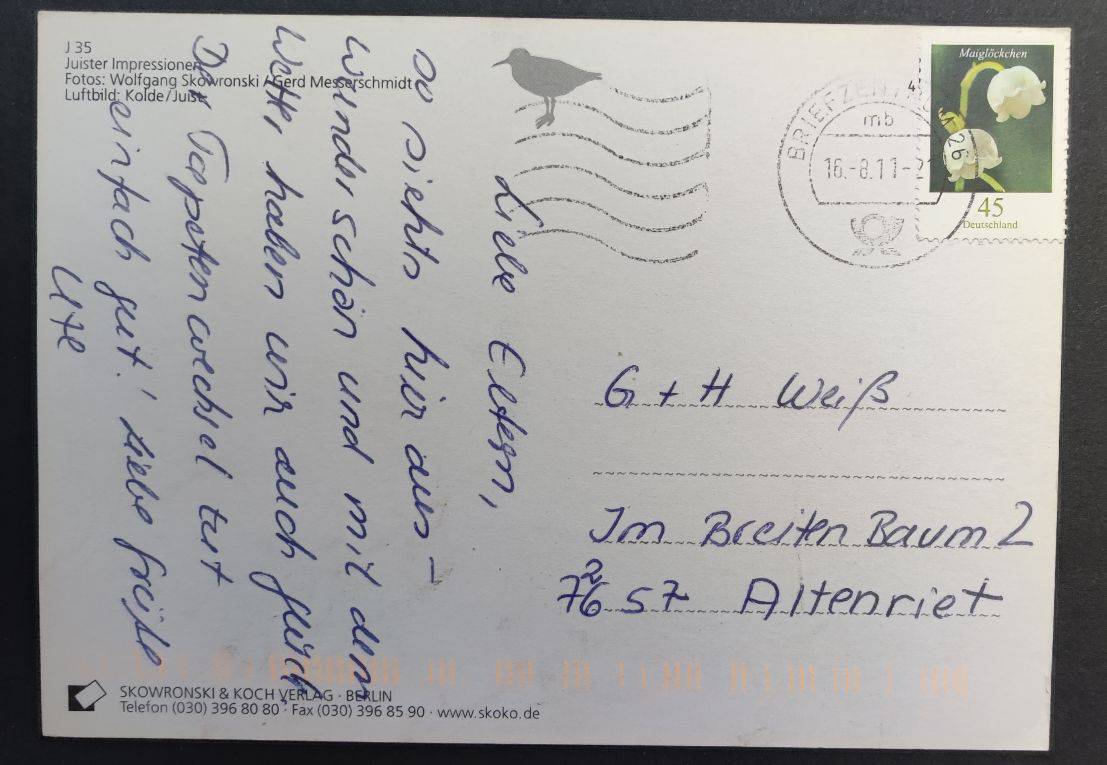 J 35
Juister Impressionen
Fotos: Wolfgang Skowronski / Gerd Messerschmidt
Luftbild: Kolde/Juist
Liebe Eltern,
so siehts hier aus –
wunderschön und mit dem
Wetter haben wir auch Glück
Der Tapetenwechsel tut
einfach gut! Liebe Grüße
Ute
BRIEFZENTRUM 26
mb
16.-8.11-21
Maiglöckchen
45
Deutschland
G + H Weiß
Im Breiten Baum 2
72657 Altenriet
SKOWRONSKI & KOCH VERLAG · BERLIN
Telefon (030) 396 80 80 · Fax (030) 396 85 90 · www.skoko.de